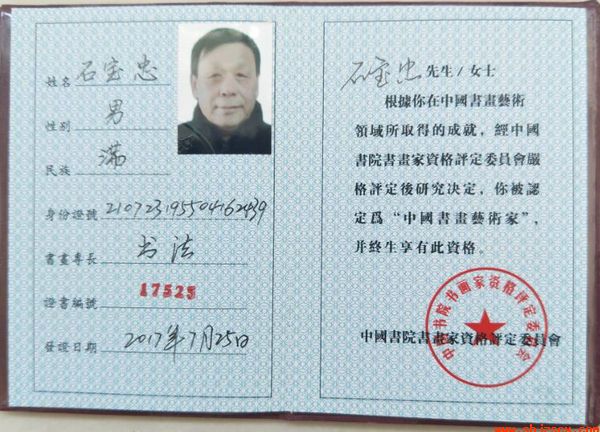 姓名 石宝忠
性别 男
民族 满
身份證號
書畫專長 书法
證書編號 17525
發證日期 2017年7月25日
石宝忠 先生/女士
根據你在中國書畫藝術
領域所取得的成就，經中國
書院書畫家資格評定委員會嚴
格評定後研究决定，你被認
定爲“中國書畫藝術家”，
并終生享有此資格。
中國書院書畫家資格評定委員會
中國书院书画家资格评定委员会